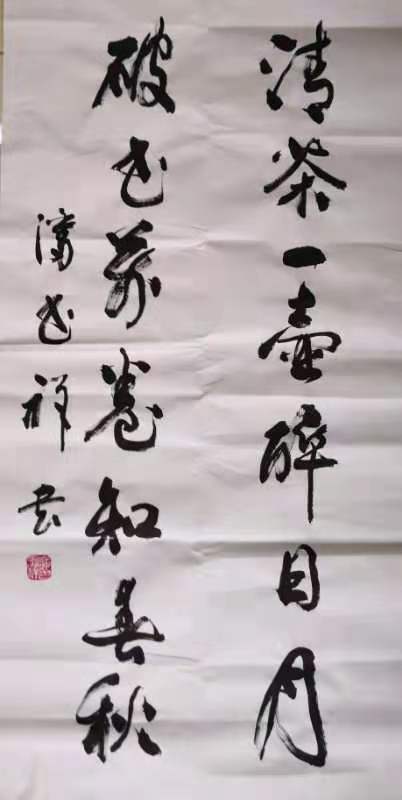 清茶一壶醉日月
破书萬卷知春秋
书祥书